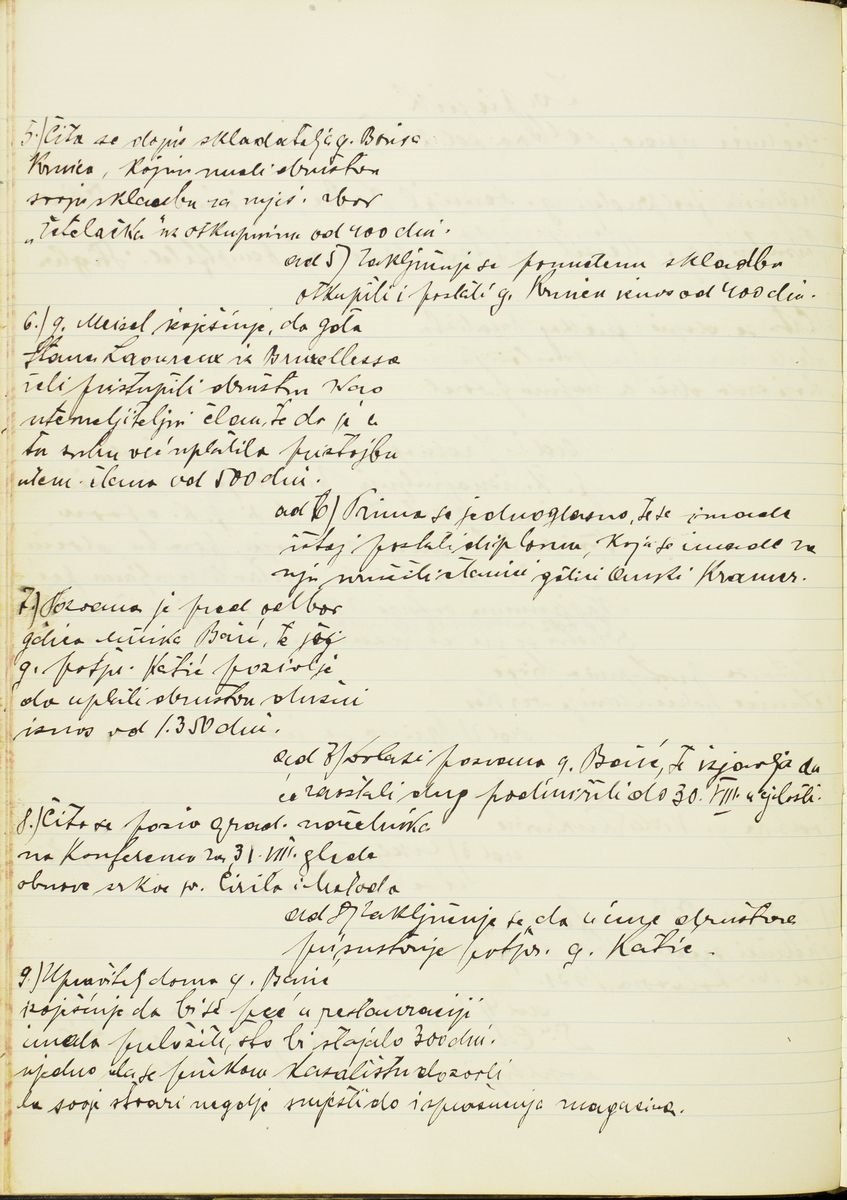 5.) Čita se dopis skladatelja g. Borisa
Krnica, kojim nudi društvu
svoju skladbu za mješ. zbor
„Šetelačka" uz otkupninu od 400 din.
ad 5) Zaključuje se ponuđenu skladbu
otkupiti i poslati g. Krnicu iznos od 400 din.
6.) g. Meisel izvješćuje, da gđa
Laoureux iz Bruxellessa
želi pristupiti društvu kao
utemeljiteljni član, te da je u
tu svrhu već uplatila pristojbu
utem. člana od 500 din.
ad 6) Prima se jednoglasno, te se imade
istoj poslati diplomu, koja se imade za
nju uručiti članici gđici Kramer.
7.) Pozvana je pred odbor
gđica Barić, te joj
g. potpr. Katić pozivlje
da uplati društvu dužni
iznos od 1.350 din.
ad 7) Dolazi pozvana g. Barić, te izjavlja da
će zaostali dug podmiriti do 30. VIII. u cjelosti.
8.) Čita se poziv grad. načelnika
na konferencu za 31. VIII. glede
obnove crkve sv. Ćirila i Metoda
ad 8) Zaključuje se, da u ime društva
prisustvuje potpr. g. Katić.
9.) Upravitelj doma g. Banić
izvješćuje da bi se peć u restauraciji
imala preložiti, što bi stajalo 300 din.
ujedno da se kazalištu dozvoli
da svoje stvari negdje smjesti do ispražnjenja magazina.